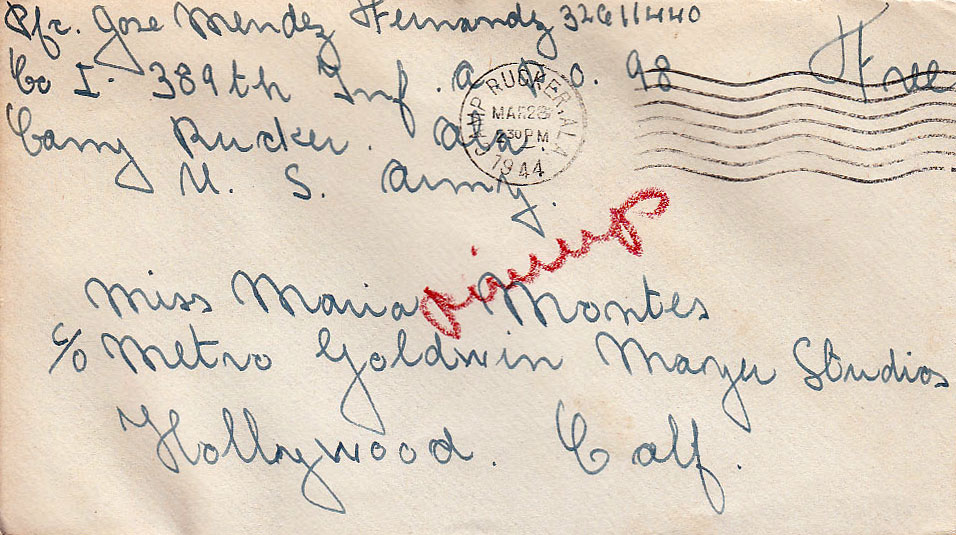 Pfc. Jose Mendez Fernandez 32611440
Co I. 389th Inf. A.P.O. 98 Free
Camp Rucker. Ala
U. S. Army.
CAMP RUCKER, ALA.
MAR 28
2 30 PM
1944
pinup
Miss Maria Montes
c/o Metro Goldwin Mayer Studios
Hollywood. Calf.